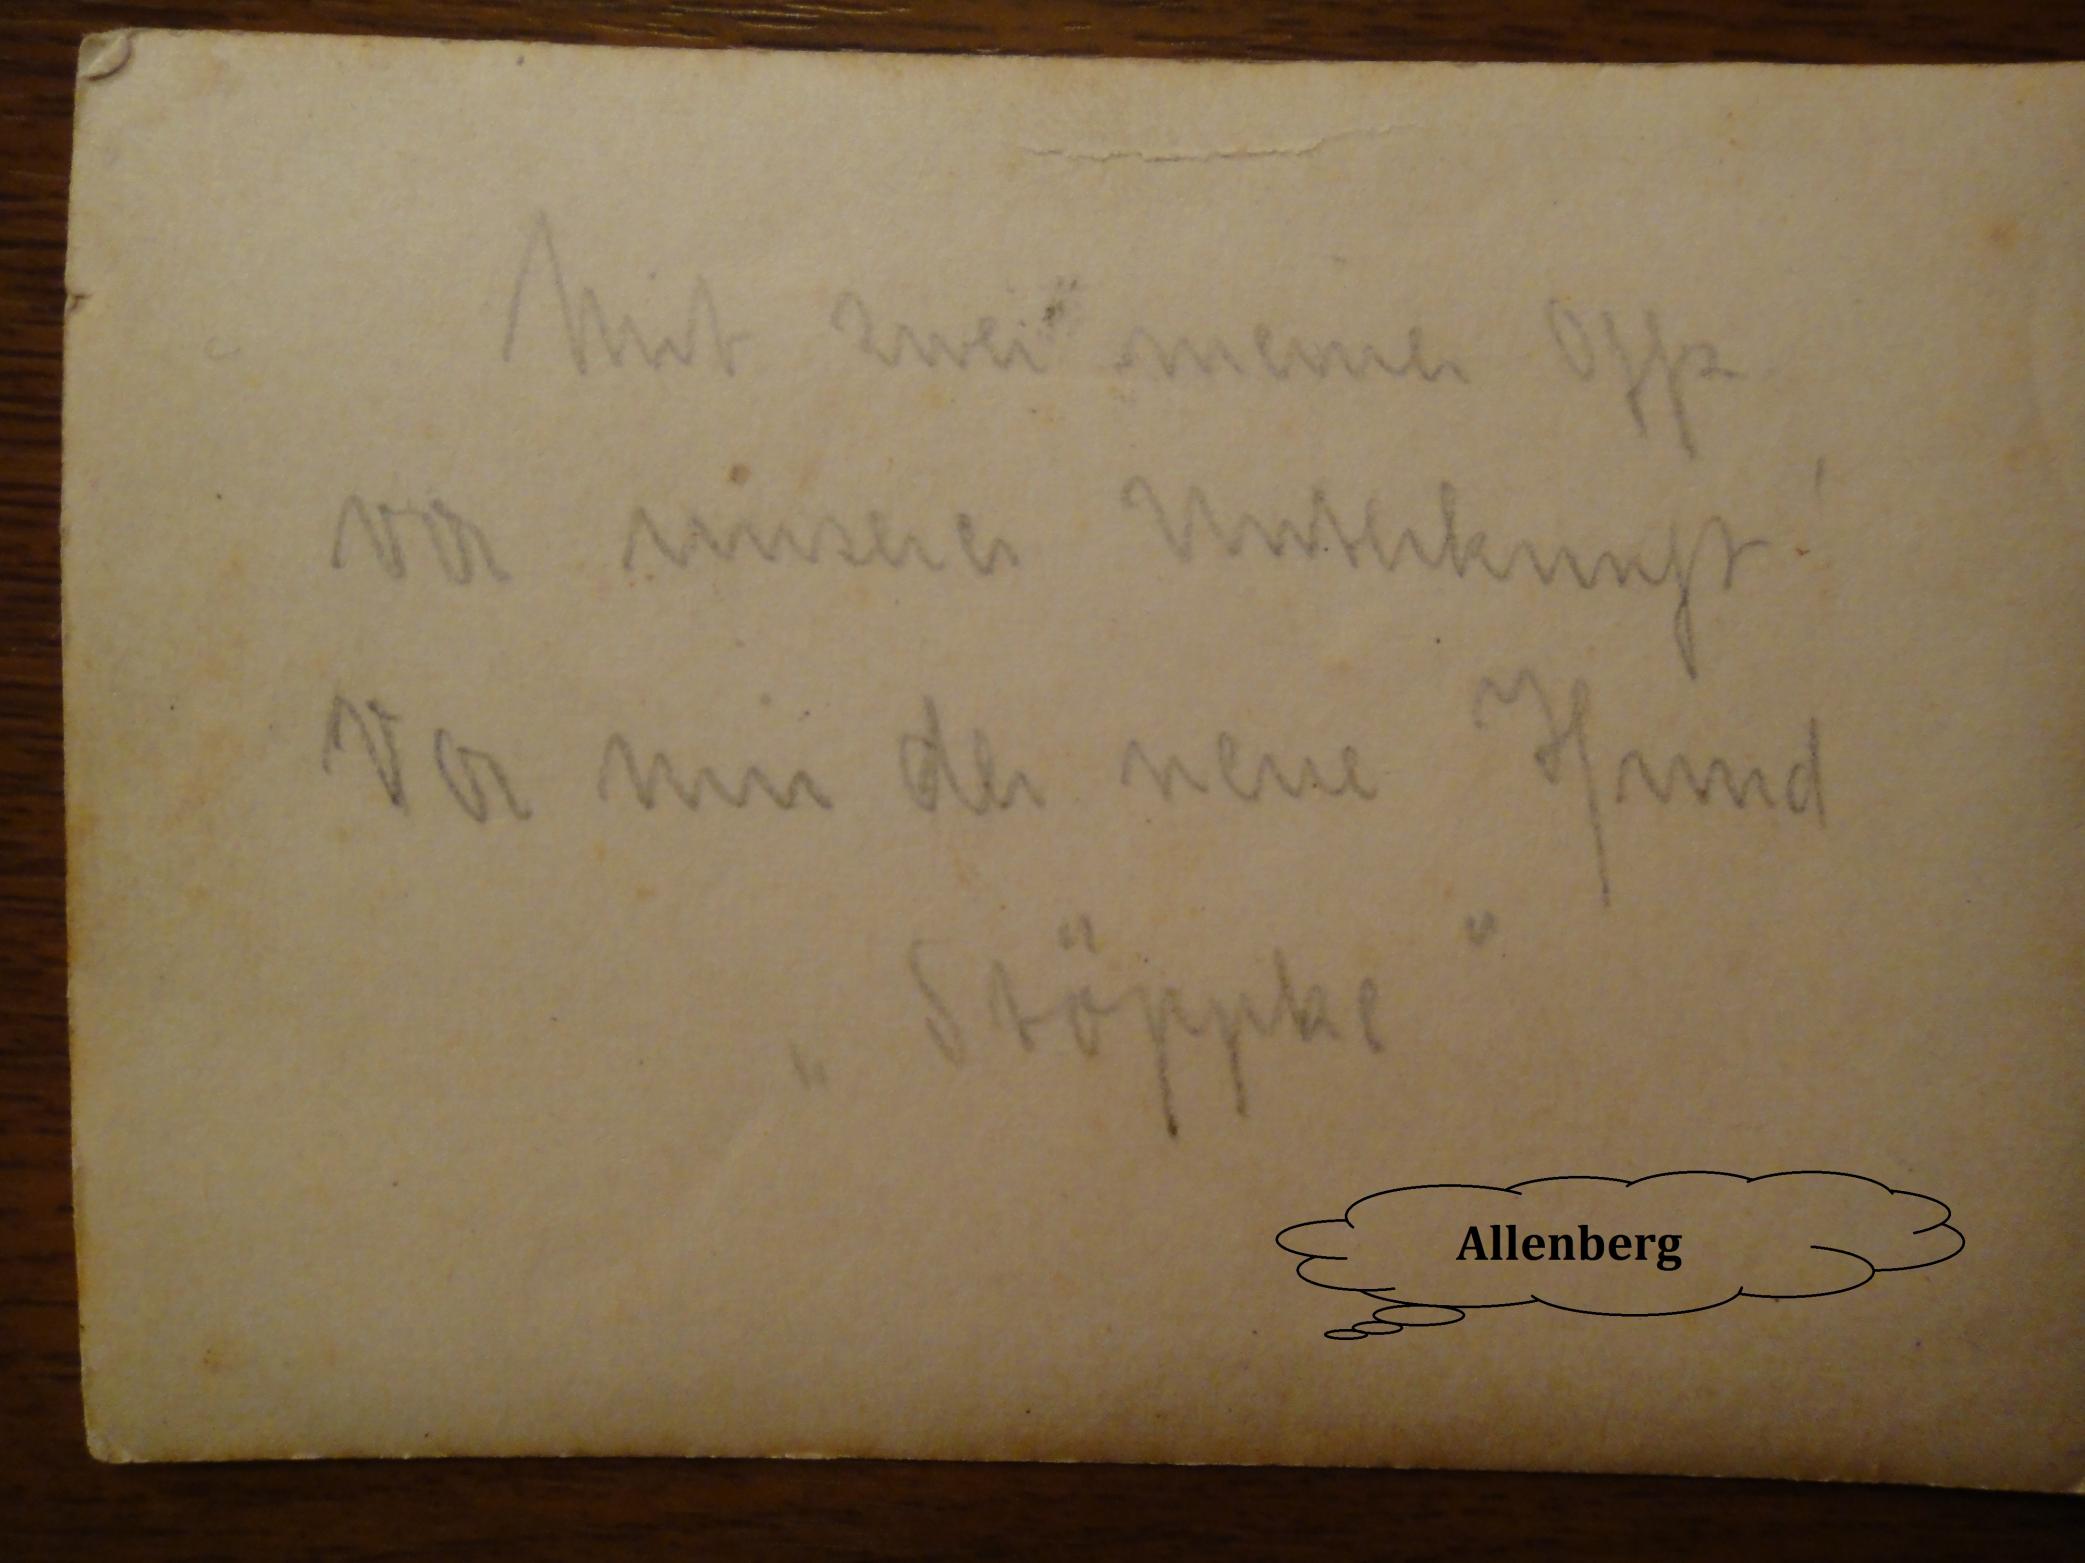 Mit zwei meiner Offz
vor unserer Unterkunft!
Vor mir der neue Hund
„Stöppke"
Allenberg